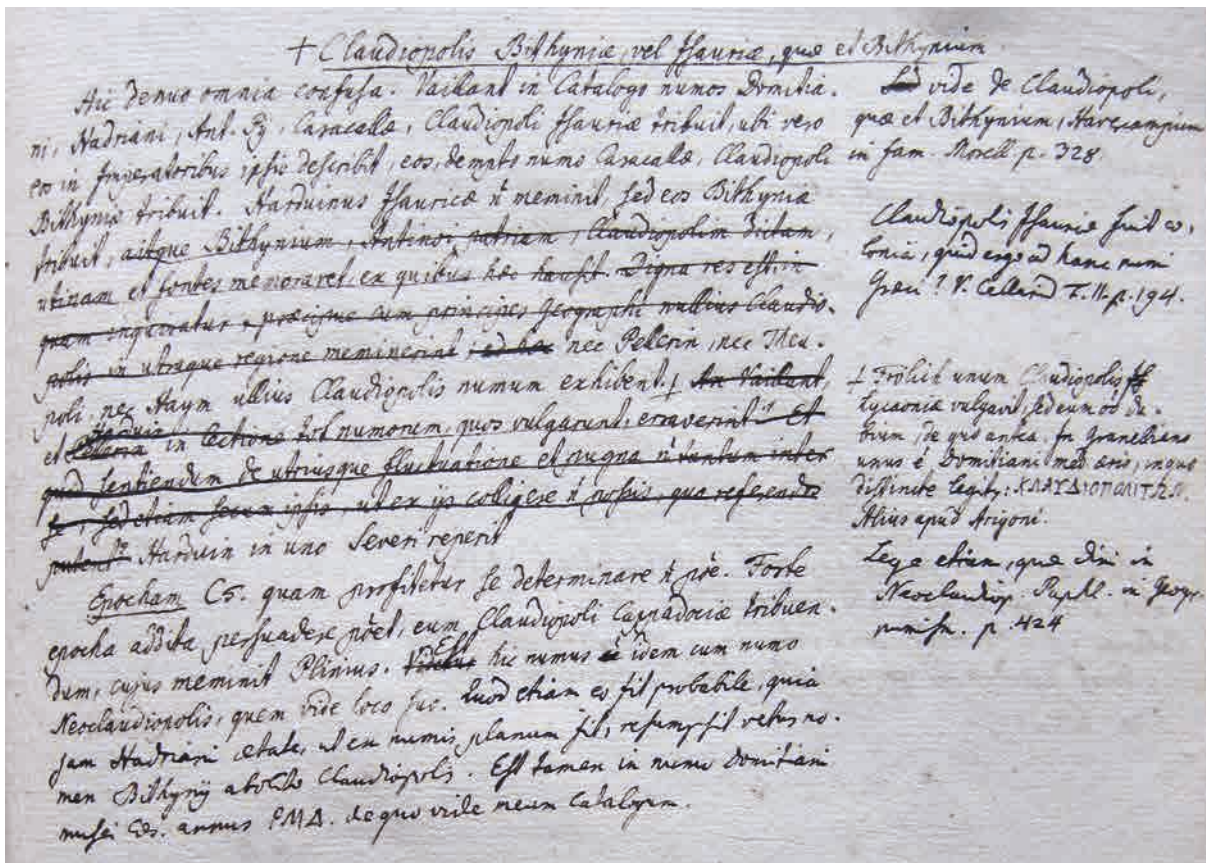 + Claudiopolis Bithyniæ, vel Isauriæ, quæ et Bithynium.
Hic denuo omnia confusa. Vaillant in Catalogo numos Domitia-
ni, Hadriani, Ant. Pij, Caracallæ, Claudiopoli Isauriæ tribuit, ubi vero
eos in Imperatoribus ipsis describit, eos, dempto numo Caracallæ, Claudiopoli
Bithyniæ tribuit. Harduinus Isauricæ meminit, sed eos Bithyniæ
tribuit, aitque Bithynium, Antinoi patriam, Claudiopolim dictam,
utinam et fontes memoraret, ex quibus hæc hausit. Digna res est, in
quam inquiratur, præcipue cum principes geographi nullius Claudio-
polis in utraque regione meminerint nec Pellerin, nec Theu-
poli, nec Haym ullius Claudiopolis numum exhibent. + An Vaillant,
et Harduin in lectione tot numorum, quos vulgarunt, erraverint? Et
quid sentiendum de utriusque fluctuatione et pugna tantum inter
se, sed etiam secum ipsis, ut ex ijs colligere possis, quo referendos
putent? Harduin in uno Severi reperit
Epocham quam profitetur se determinare Forte
epocha addita persuadere eum Claudiopoli Cappadociæ tribuen-
dum, cujus meminit Plinius. Est hic numus idem cum numo
Neoclaudiopolis, quem vide loco suo. Quod etiam eo fit probabile, quia
jam Hadriani ætate, ut ex numis planum fit, vetus no-
men Bithynij abolito Claudiopolis. Est tamen in numo Domitiani
musei Cæs. annus ΡΜΔ. de quo vide meum Catalogum.
Sed vide de Claudiopoli,
quæ et Bithynium, Havercampium
in fam. Morell p. 328.
Claudiopolis Isauriæ fuit co-
lonia, quid ergo ad hanc numi
Græci? V. Cellard T. II. p. 194.
+ Frölich unum Claudiopolis
Lycaoniæ vulgavit, sed eum ob du-
bium, de quo antea. In Granelliano
unus Domitiani med. æris, in quo
distincte legitur: ΚΛΑΥΔΙΟΠΟΛΙΤΩΝ.
Alius apud Arigoni.
Lege etiam, quæ dixi in
Neoclaudiop. Paphl. in Geogr.
numism. p. 424